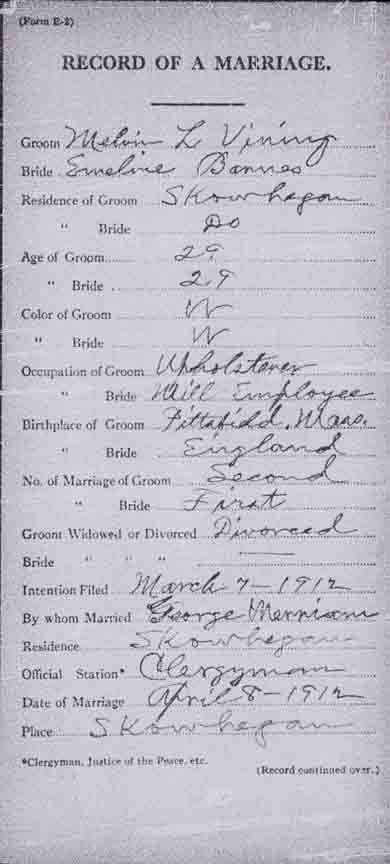 (Form E-2)
RECORD OF A MARRIAGE.
Groom Melvin L Vining
Bride Emeline Bannes
Residence of Groom Skowhegan
" Bride Do
Age of Groom 29
" Bride 29
Color of Groom W
" Bride W
Occupation of Groom Upholsterer
" Bride Mill Employee
Birthplace of Groom Pittsfield, Mass.
" Bride England
No. of Marriage of Groom Second
" Bride First
Groom Widowed or Divorced Divorced
Bride " " "
Intention Filed March 7-1912
By whom Married George Merriam
Residence Skowhegan
Official Station* Clergyman
Date of Marriage April 8-1912
Place Skowhegan
*Clergyman, Justice of the Peace, etc.
(Record continued over.)